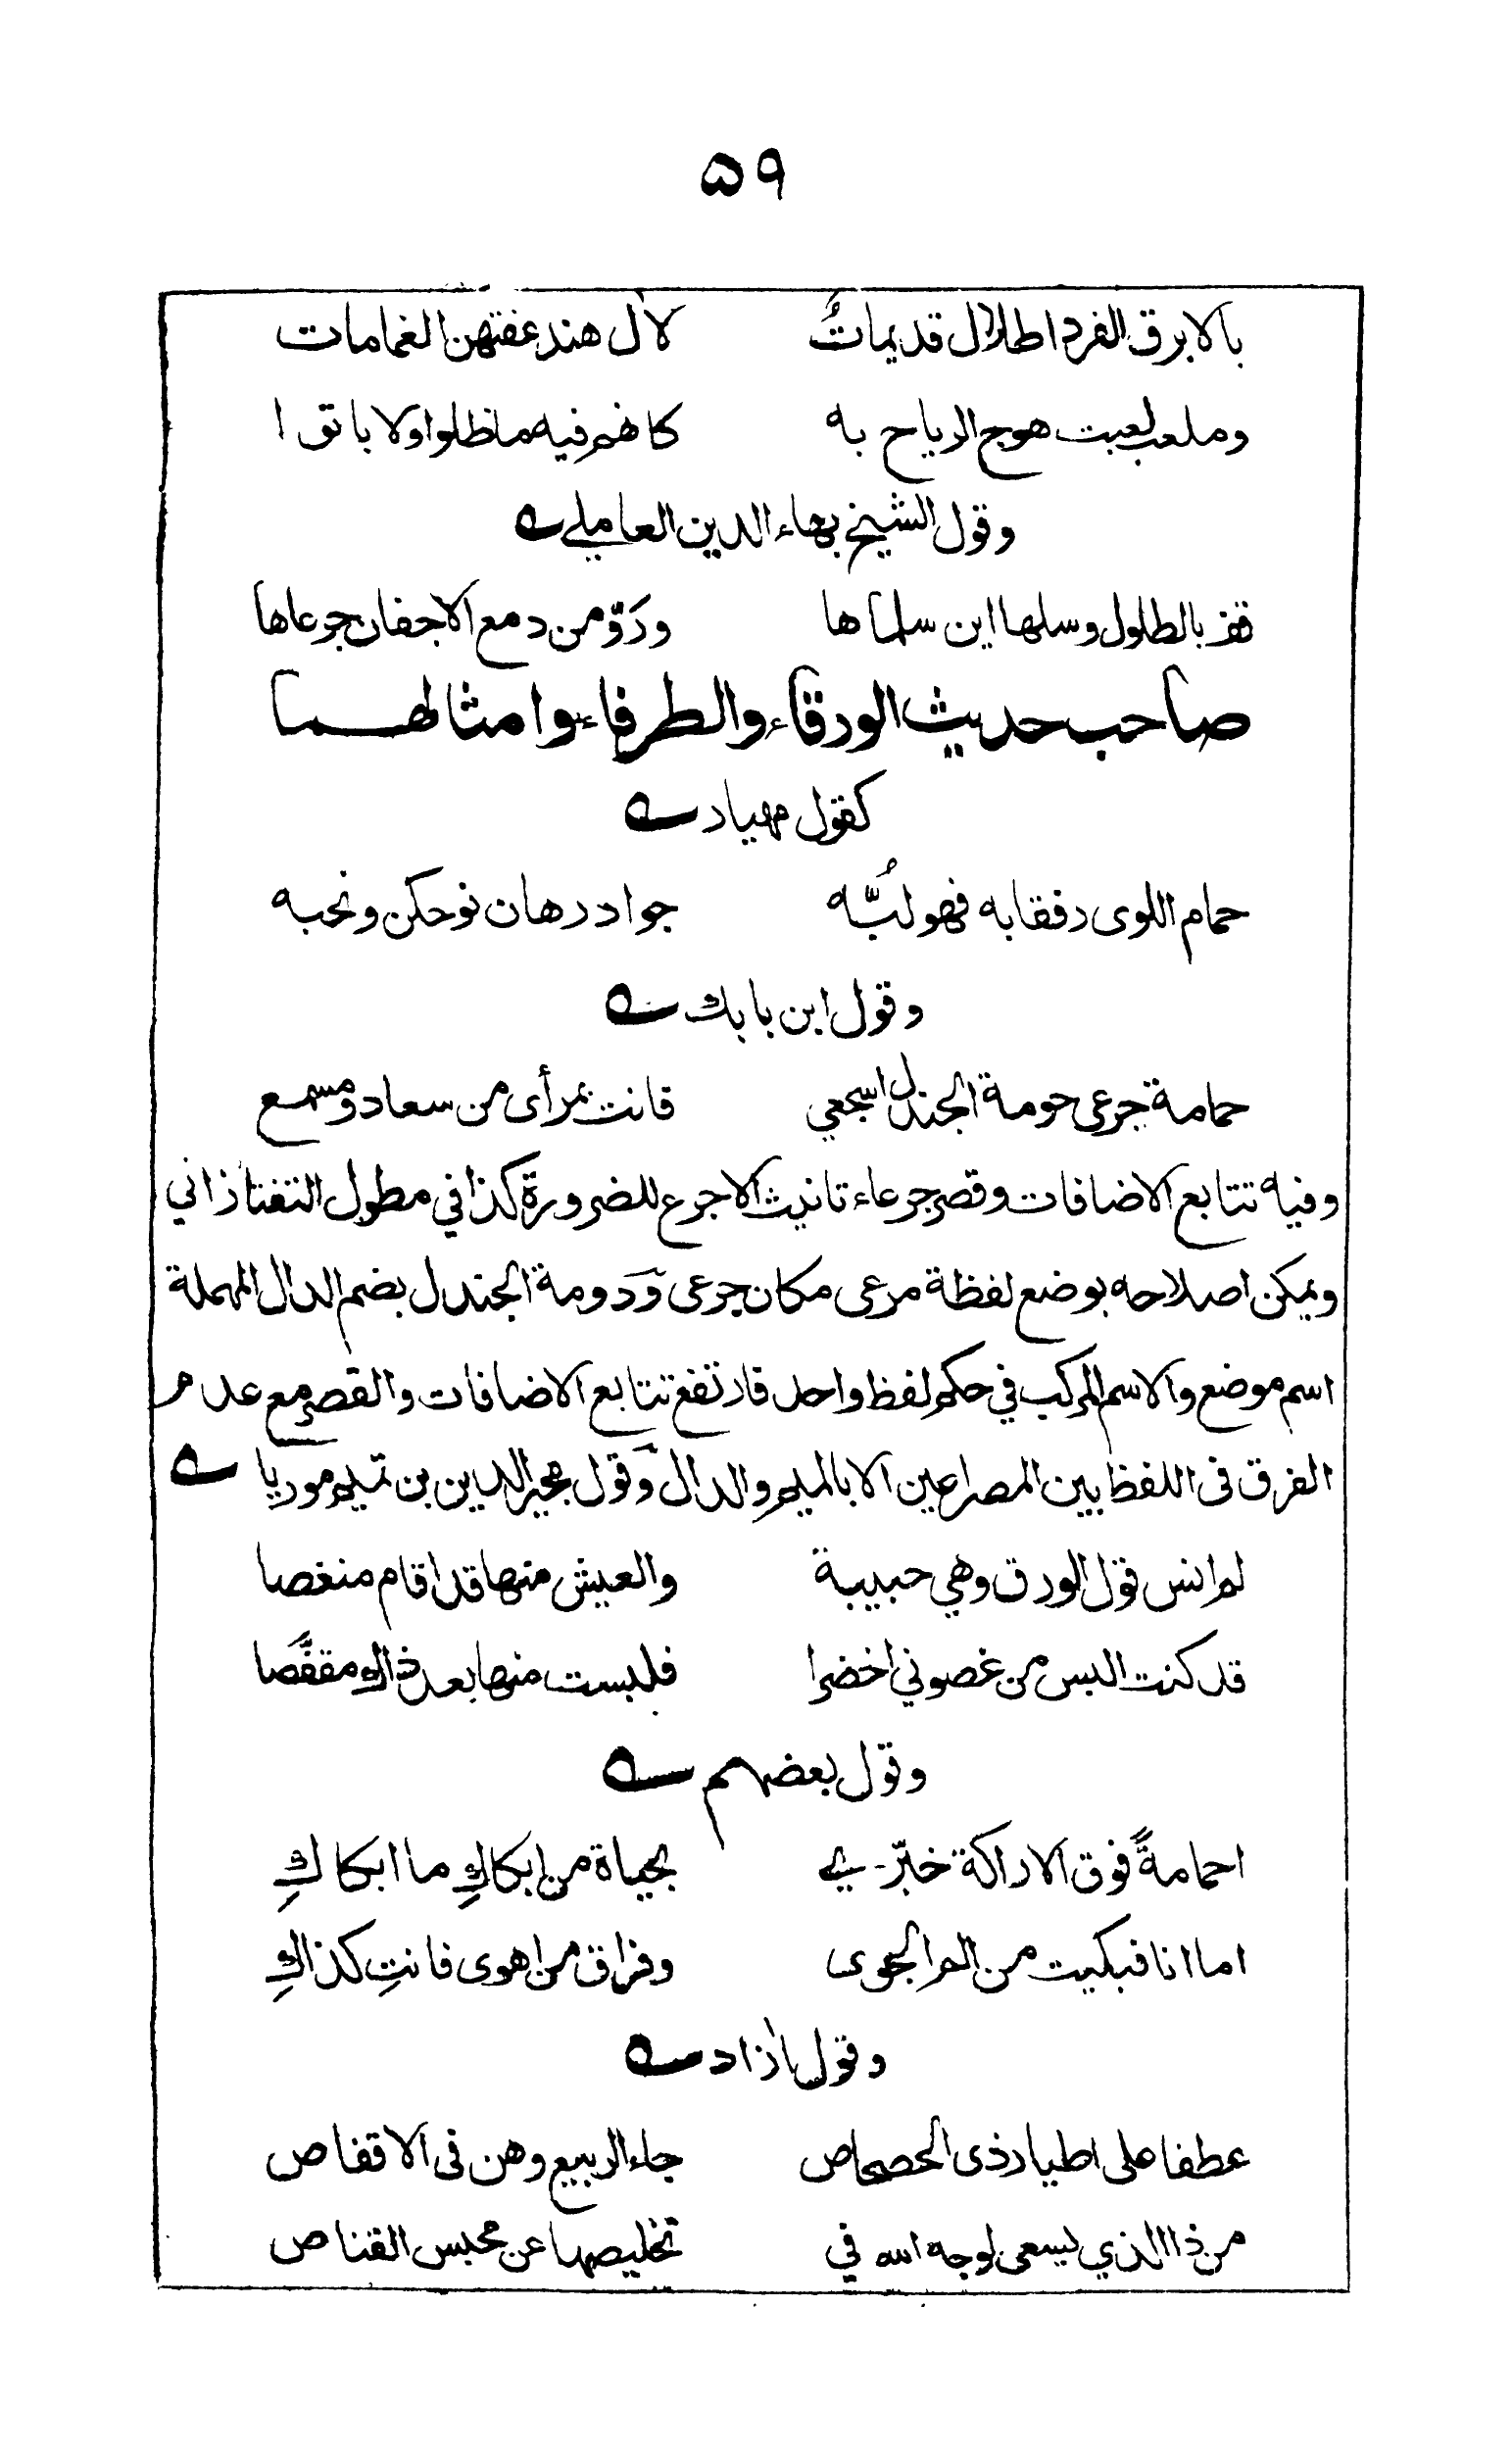 ۵۹
بالابرق الفرد اطلال قديماتُ لاٰل هند عفتهن الغمامات
وملعب لعبت هوج الرياح به كانهم فيه ما ظلوا ولا باتوا
وقول الشيخ بهاء الدين العاملي
قف بالطلول وسلها اين سلماها وروّ من دمع الاجفان جرعاها
صاحب حديث الورقاء والطرفاء وامثالهما
كقول مهيار
حمام اللوى رفقا به فهو لُبّه جواد رهان نوحكن ونحبه
وقول ابن بابك
حمامة جرعى حومة الجندل اسجعي فانت بمرأى من سعاد ومسمع
وفيه تتابع الاضافات وقصر جرعاء تانيث الاجرع للضرورة كذا في مطول التفتازاني
ويمكن اصلاحه بوضع لفظة مرعى مكان جرعى ودومة الجندل بضم الدال المهملة
اسم موضع والاسم المركب في حكم لفظ واحد فارتفع تتابع الاضافات والقصر مع عدم
الفرق فى اللفظ بين المصراعين الا بالميم والدال وقول مجير الدين بن تميم موريا
لم انس قول الورق وهي حبيبة والعيش منها قد اقام منغصا
قد كنت البس من غصوني اخضرا فلبست منها بعد ذاك مقفّصا
وقول بعضهم
احمامةً فوق الاراكة خبّري بحياة من ابكاكِ ما ابكاكِ
اما انا فبكيت من الم الجوى وفراق من اهوى فانتِ كذاكِ
وقول اٰزاد
عطفا على اطيار ذى الحصحاص جاء الربيع وهن فى الاقفاص
من ذا الذي يسعى لوجه الله في تخليصها عن محبس القناص